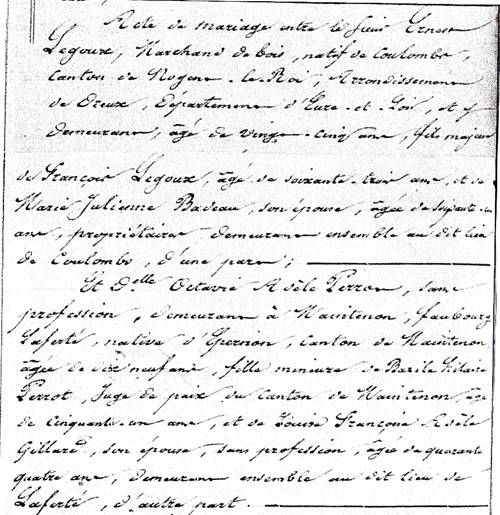 Acte de mariage entre le sieur Ernest
Legoux, Marchand de bois, natif de Coulombs,
Canton de Nogent-le-Roi, Arrondissement
de Dreux, Département d'Eure-et-Loir, et y
demeurant, âgé de vingt-cinq ans, fils majeur
de François Legoux, âgé de soixante-trois ans, et de
Marie Julienne Badeau, son épouse, âgée de soixante-un
ans, propriétaires, demeurant ensemble au dit lieu
de Coulombs, d'une part;
Et Delle Octavie Adèle Perrot, sans
profession, demeurant à Maintenon, faubourg
Laferté, native d'Epernon, Canton de Maintenon
âgée de dix neuf ans, fille mineure de Bazile Hilaire
Perrot, Juge de paix du Canton de Maintenon, âgé
de Cinquante-un ans, et de Louise Françoise Adèle
Gillard, son épouse, sans profession, âgée de quarante
quatre ans, demeurant ensemble au dit lieu de
Laferté, d'autre part.